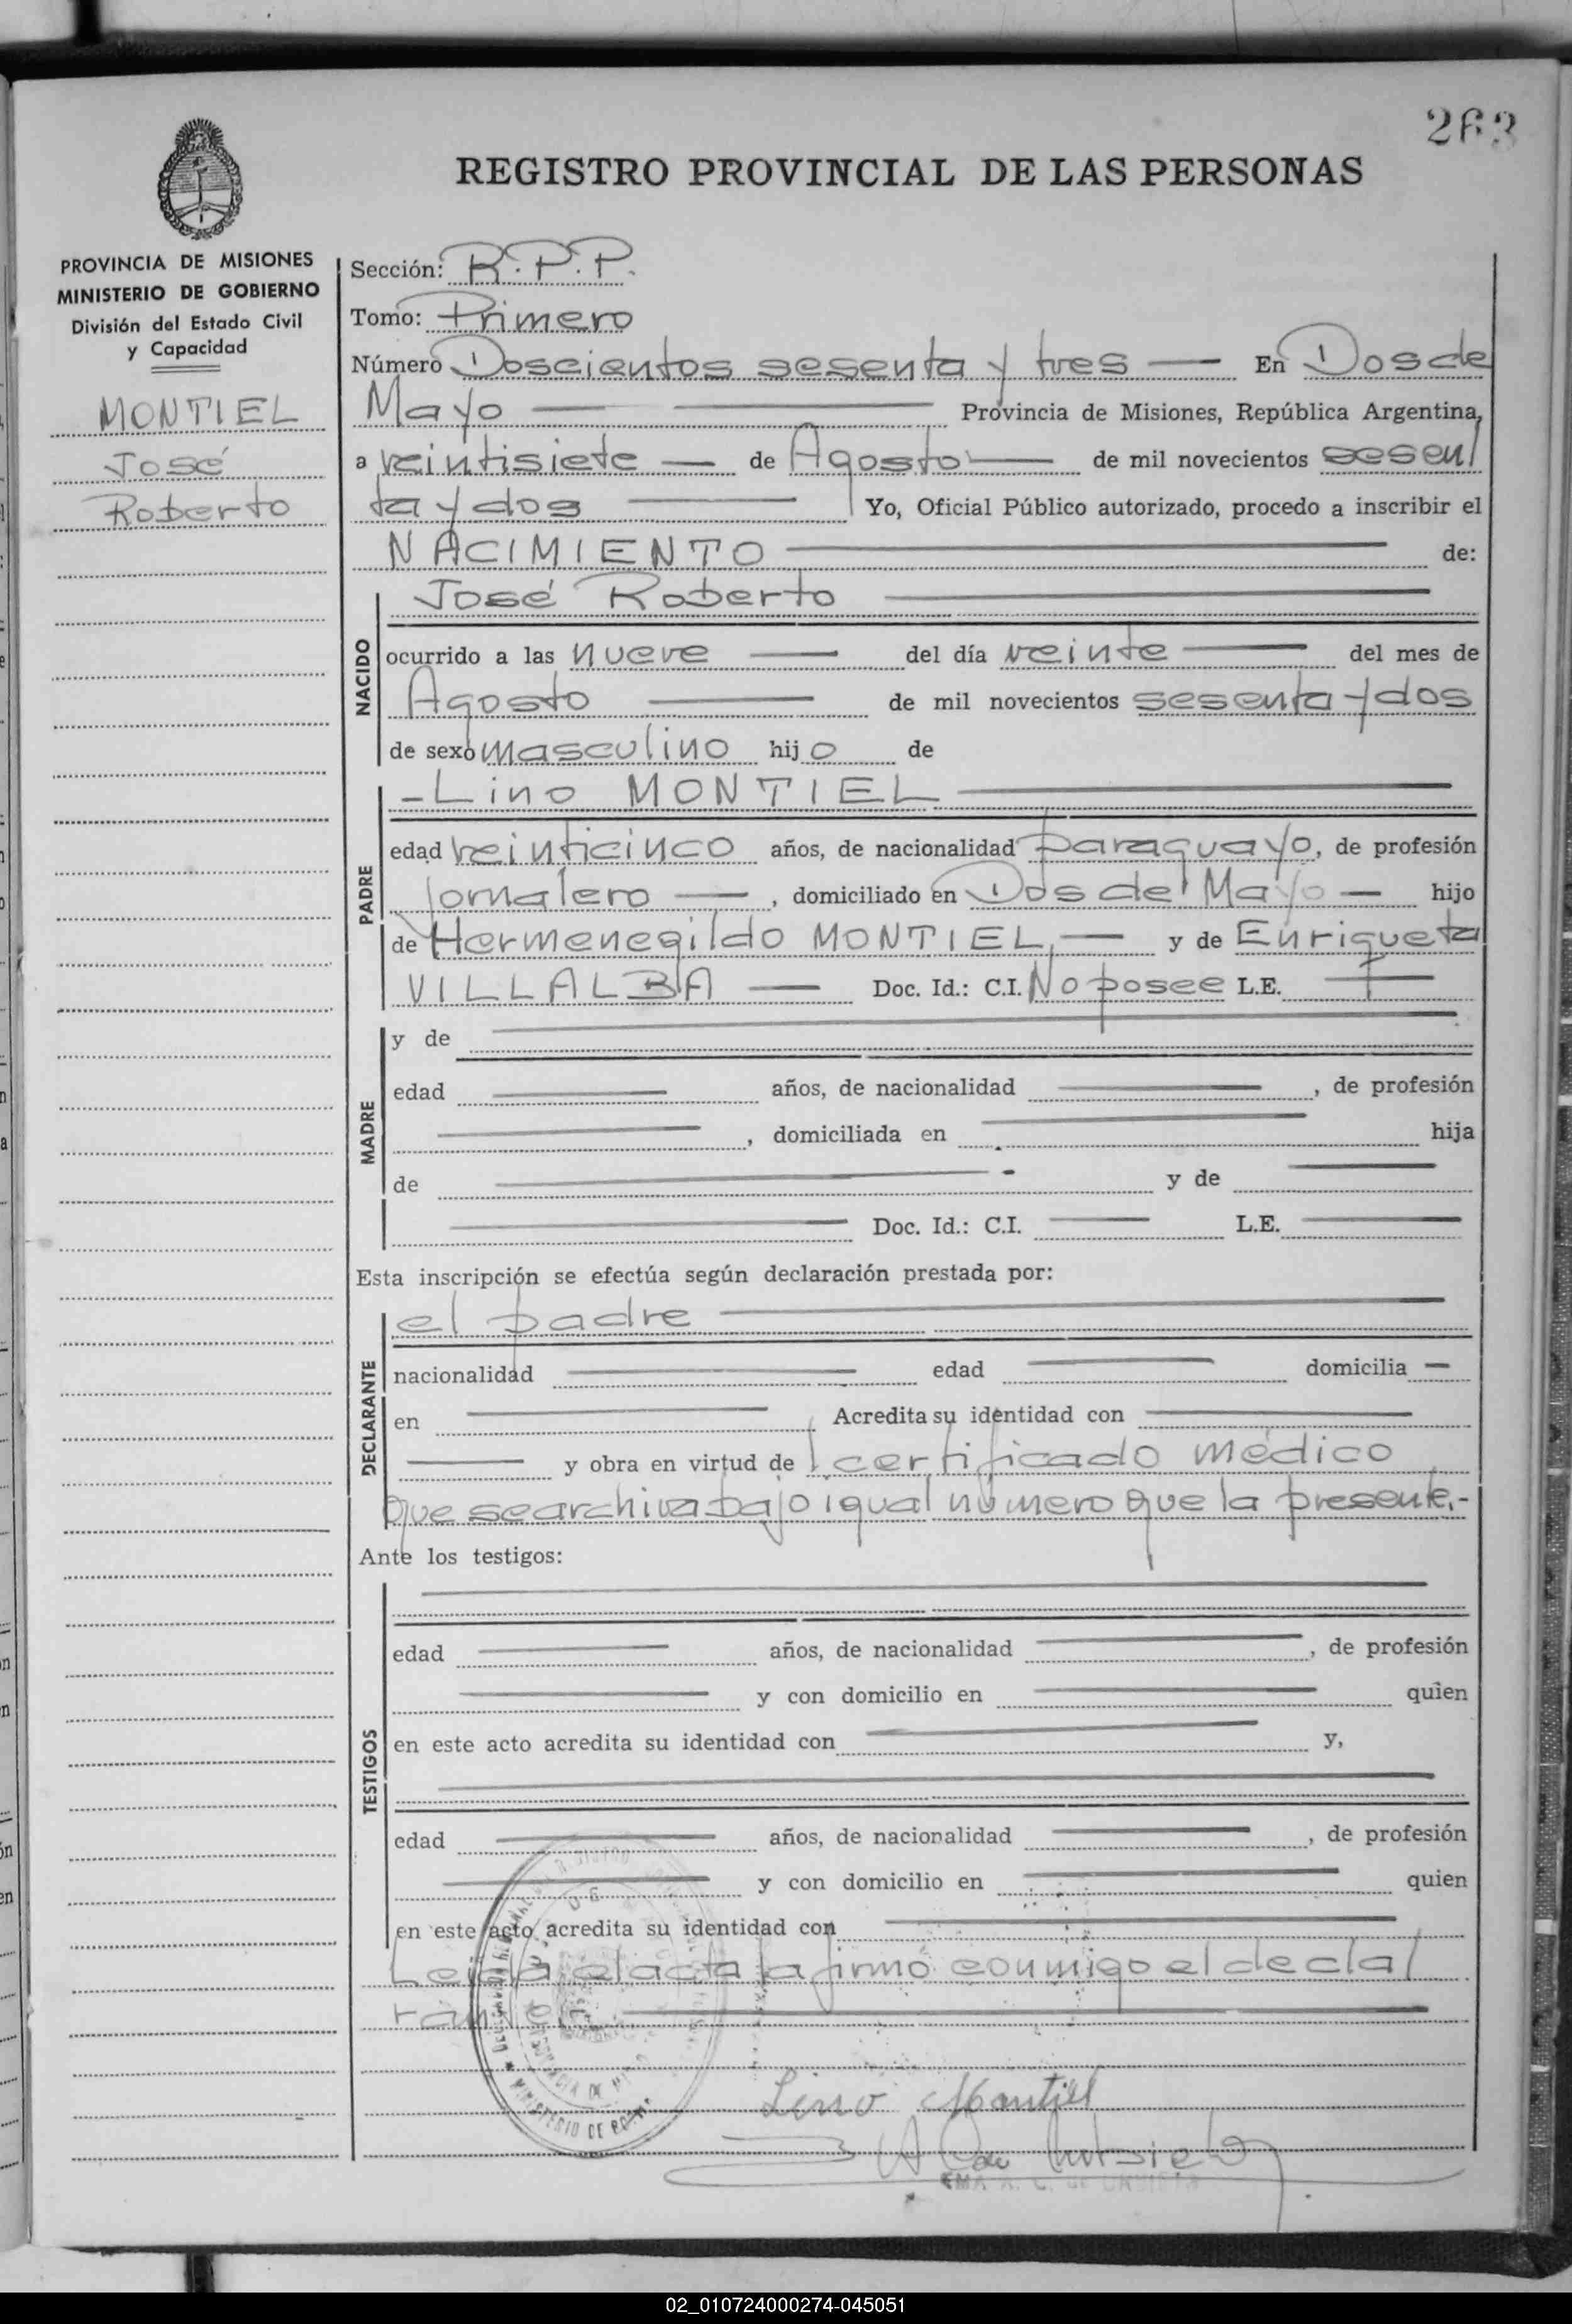 263
REGISTRO PROVINCIAL DE LAS PERSONAS
PROVINCIA DE MISIONES
MINISTERIO DE GOBIERNO
División del Estado Civil
y Capacidad
MONTIEL
José
Roberto
Sección: R.P.P.
Tomo: Primero
Número Doscientos sesenta y tres — En Dos de
Mayo — Provincia de Misiones, República Argentina,
a veintisiete — de Agosto — de mil novecientos sesen/
ta y dos — Yo, Oficial Público autorizado, procedo a inscribir el
NACIMIENTO — de:
NACIDO
José Roberto —
ocurrido a las nueve — del día veinte — del mes de
Agosto — de mil novecientos sesenta y dos
de sexo masculino hijo de
PADRE
-Lino MONTIEL —
edad veinticinco años, de nacionalidad paraguayo, de profesión
jornalero —, domiciliado en Dos de Mayo — hijo
de Hermenegildo MONTIEL, — y de Enriqueta
VILLALBA — Doc. Id.: C.I. No posee L.E. —
MADRE
y de —
edad — años, de nacionalidad —, de profesión
—, domiciliada en — hija
de — y de —
— Doc. Id.: C.I. — L.E. —
Esta inscripción se efectúa según declaración prestada por:
DECLARANTE
el padre —
nacionalidad — edad — domicilia —
en — Acredita su identidad con —
— y obra en virtud de certificado médico
que se archiva bajo igual número que la presente.-
Ante los testigos:
TESTIGOS
edad — años, de nacionalidad —, de profesión
— y con domicilio en — quien
en este acto acredita su identidad con — y,
edad — años, de nacionalidad —, de profesión
— y con domicilio en — quien
en este acto acredita su identidad con —
Leída el acta la firmó conmigo el decla/
rante. —
Lino Montiel
02_010724000274-045051